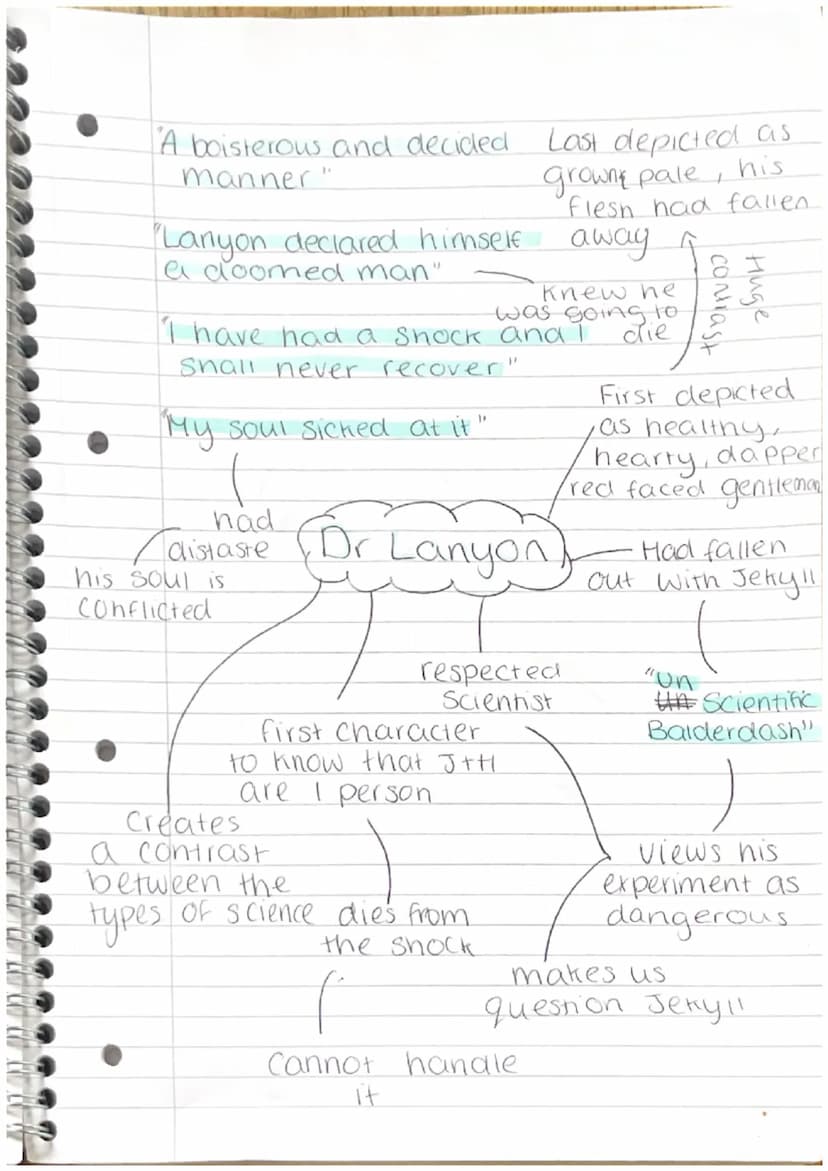 "A boisterous and decided
manner"
Last depicted as
growne pale, his
flesh had fallen
away
Huge
contrast
"Lanyon declared himself
a doomed man"
knew he
was going to
die
"I have had a shock and I
shall never recover"
First depicted
as healthy,
hearty, dapper
red faced gentleman
"My soul sicked at it"
had
distaste
his soul is
conflicted
Dr Lanyon
Had fallen
out with Jekyll
"Un
Scientific
Balderdash"
respected
Scientist
first character
to know that J+H
are 1 person
Creates
a contrast
between the
types of science
dies from
the shock
views his
experiment as
dangerous
makes us
question Jekyll
Cannot handle
it